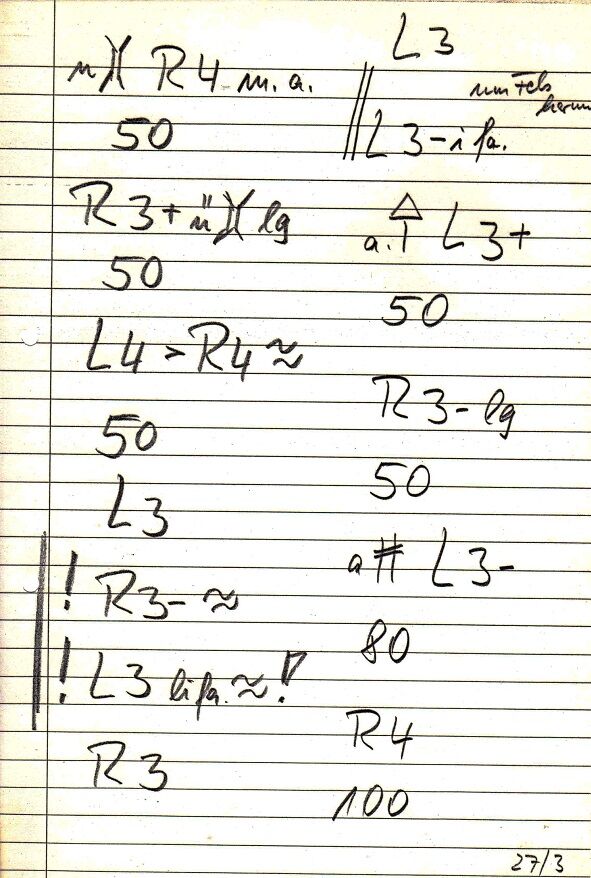 ü)( R4 m.a.
50
R3+ ü)( lg
50
L4 > R4 ≈
50
L3
! R3- ≈
! L3 lifa. ≈ !
R3
L3
L3-i fa.
a. L3+
50
R3- lg
50
a # L3-
80
R4
100
27/3